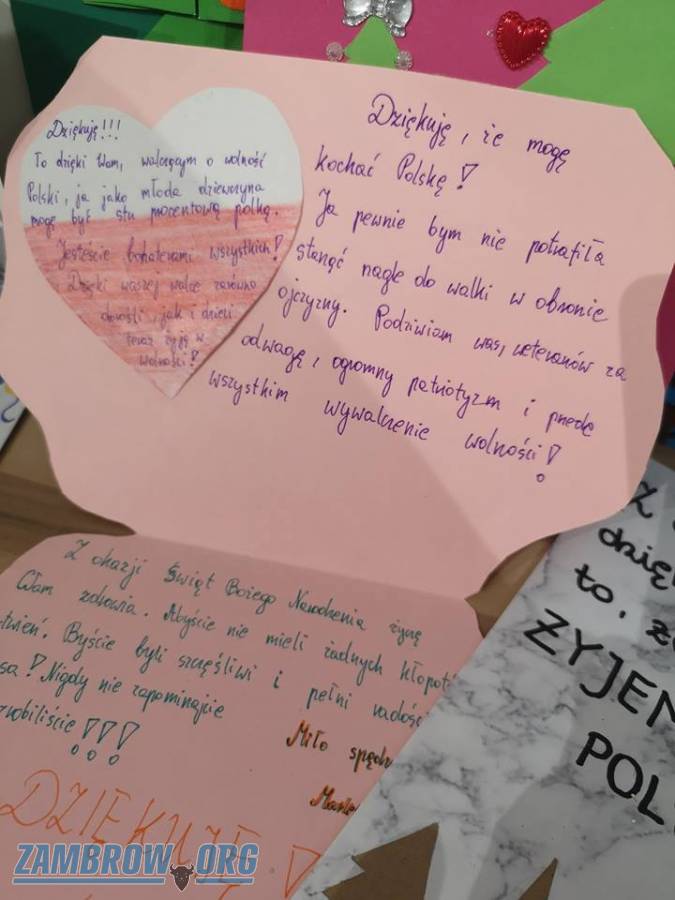 Dziękuję!!!
To dzięki Wam, walczącym o wolność
Polski, ja jako młoda dziewczyna
mogę być stu procentową polką.
Jesteście bohaterami wszystkich!
Dzięki waszej walce zarówno
dorośli, jak i dzieci
teraz żyją w
wolności!
Dziękuję, że mogę
kochać Polskę!
Ja pewnie bym nie potrafiła
stanąć nagle do walki w obronie
ojczyzny. Podziwiam was, weteranów za
odwagę, ogromny patriotyzm i przede
wszystkim wywalczenie wolności!
Z okazji Świąt Bożego Narodzenia życzę
Wam zdrowia. Abyście nie mieli żadnych kłopotó
twień. Byście byli szczęśliwi i pełni radośc
sa! Nigdy nie zapominajcie
zrobiliście!!!
Miło spędz
DZIĘKUJĘ
dzię
to, ż
ŻYJEM
POL
ZAMBROW.ORG